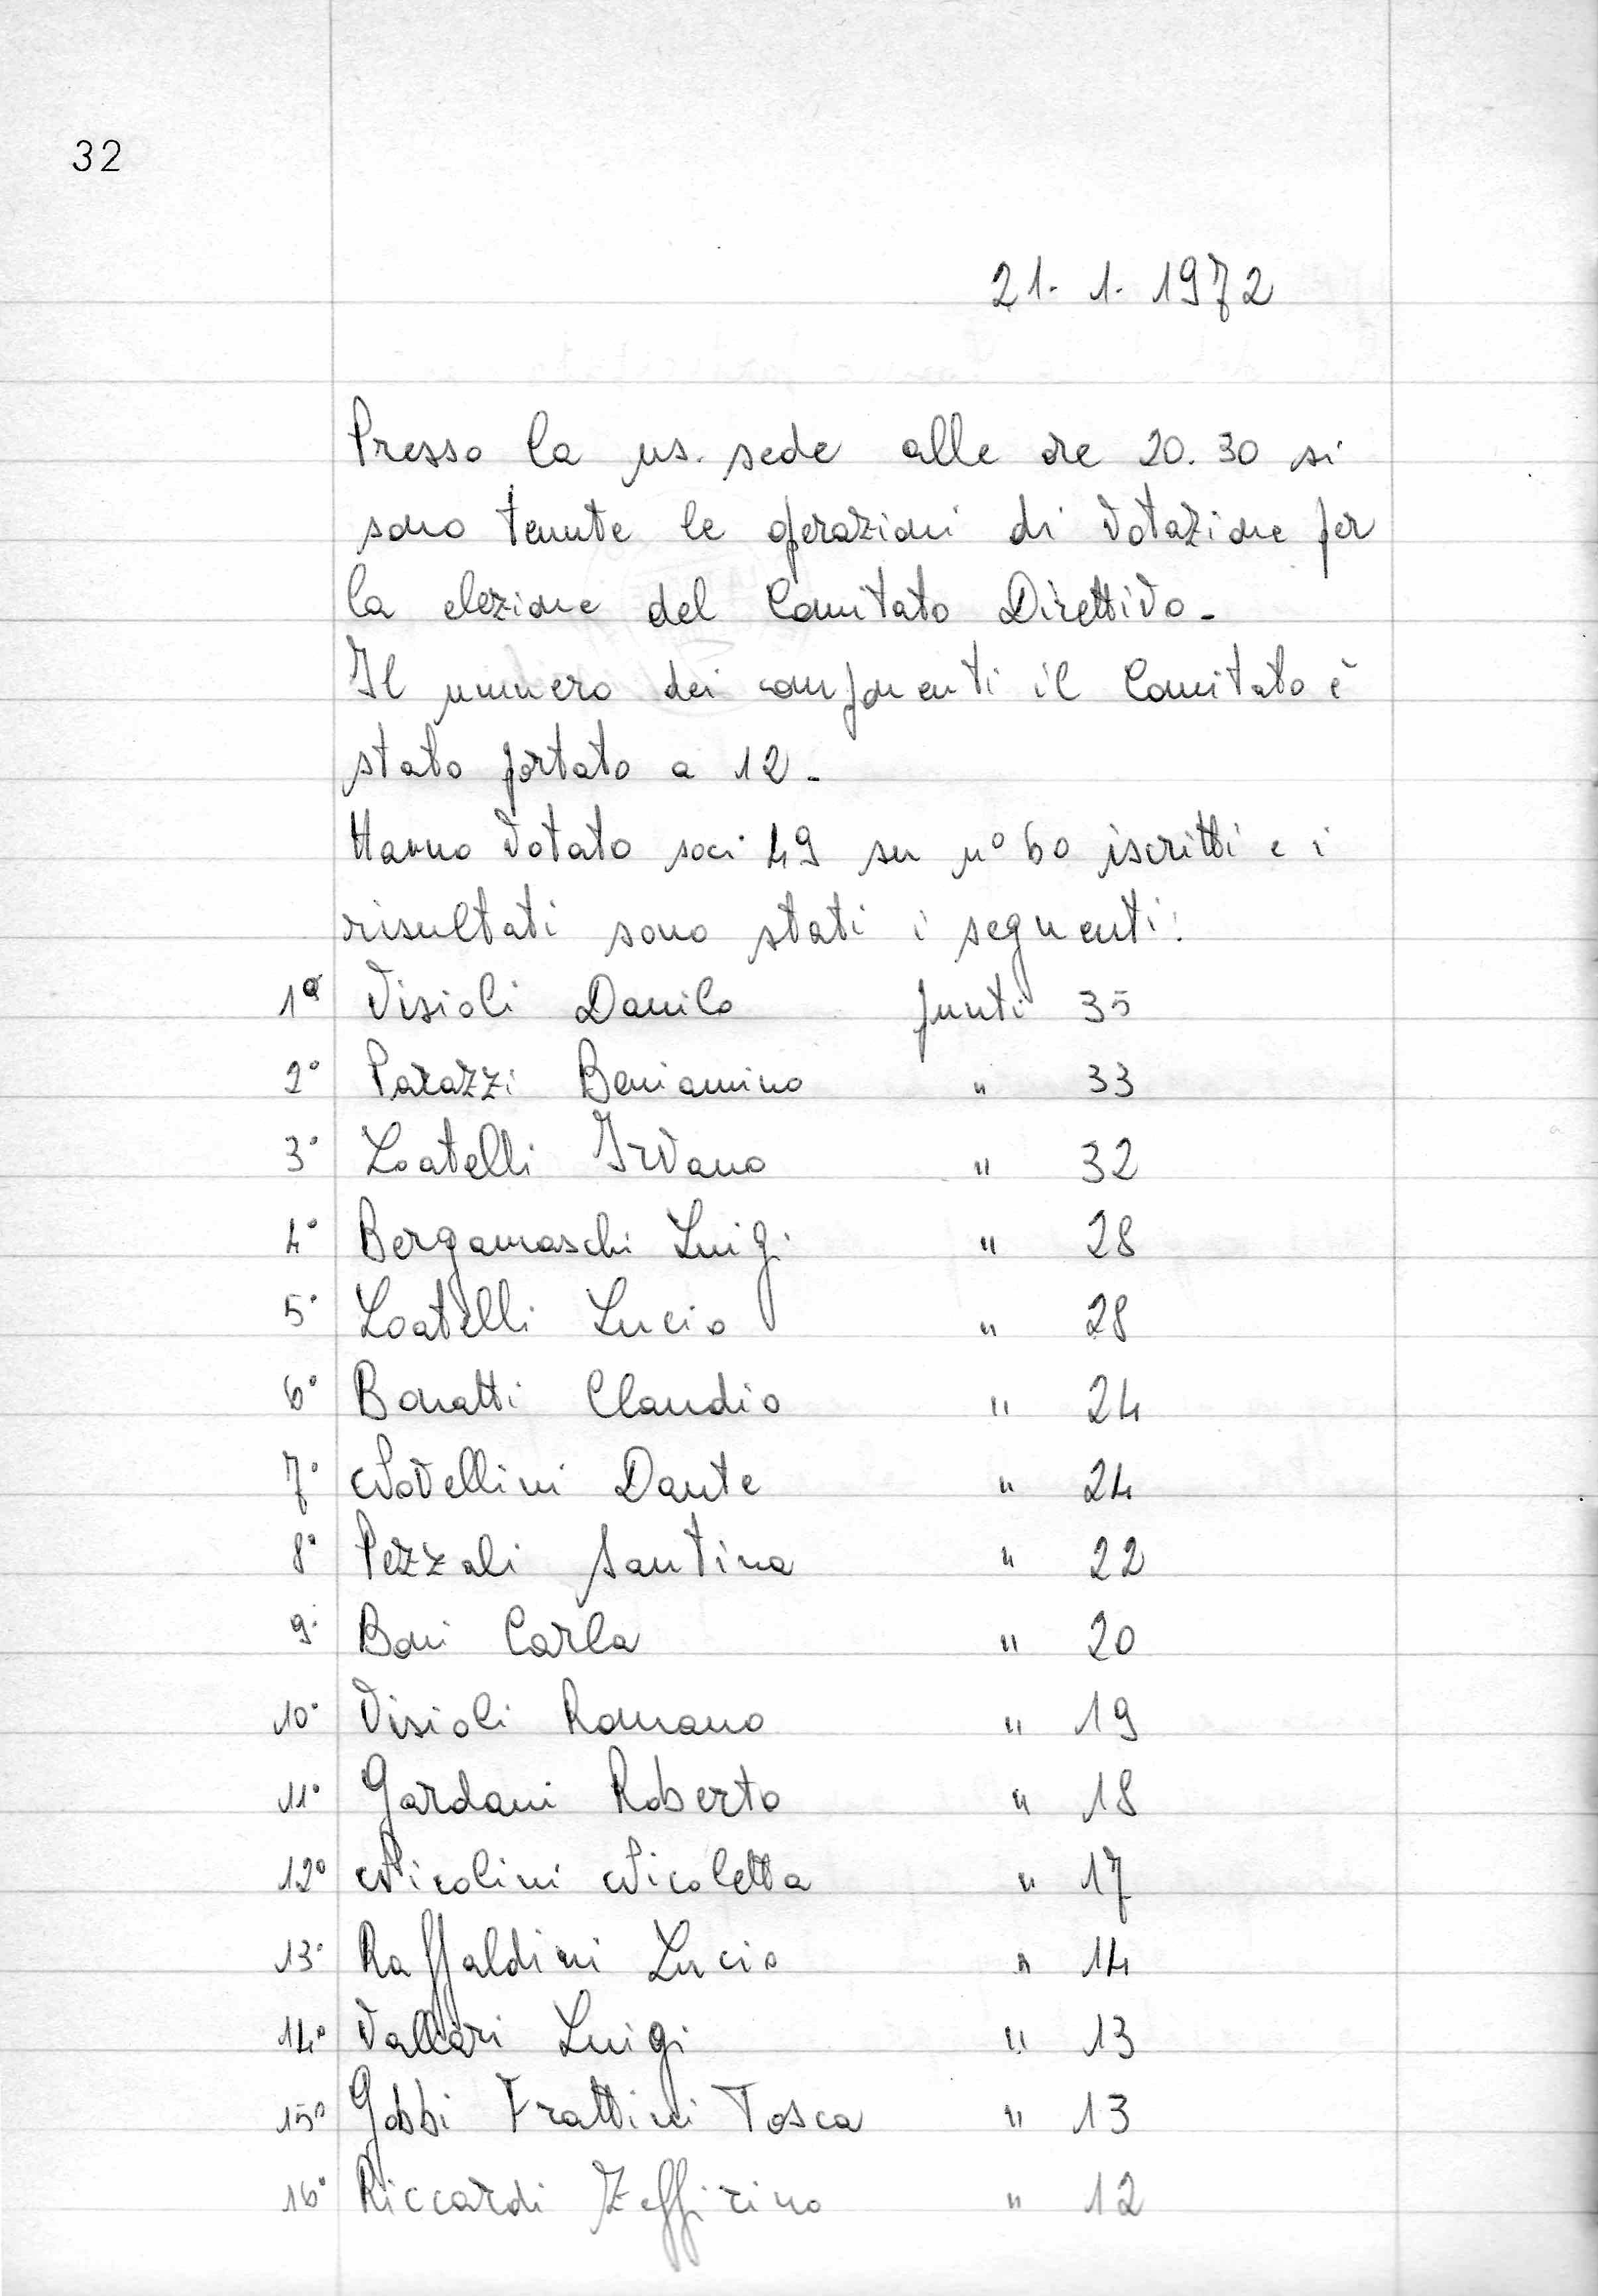 32
21. 1. 1972
Presso la ns. sede alle ore 20.30 si
sono tenute le operazioni di votazione per
la elezione del Comitato Direttivo -
Il numero dei componenti il Comitato è
stato portato a 12 -
Hanno votato soci 49 su n° 60 iscritti e i
risultati sono stati i seguenti:
1° Visioli Danilo punti 35
2° Parazzi Beniamino " 33
3° Loatelli Irvano " 32
4° Bergamaschi Luigi " 28
5° Loatelli Lucio " 28
6° Bonatti Claudio " 24
7° Novellini Dante " 24
8° Pezzali Santina " 22
9° Boni Carla " 20
10° Visioli Romano " 19
11° Gardani Roberto " 18
12° Nicolini Nicoletta " 17
13° Raffaldini Lucio " 14
14° Vallari Luigi " 13
15° Gobbi Frattini Tosca " 13
16° Riccardi Zeffirino " 12